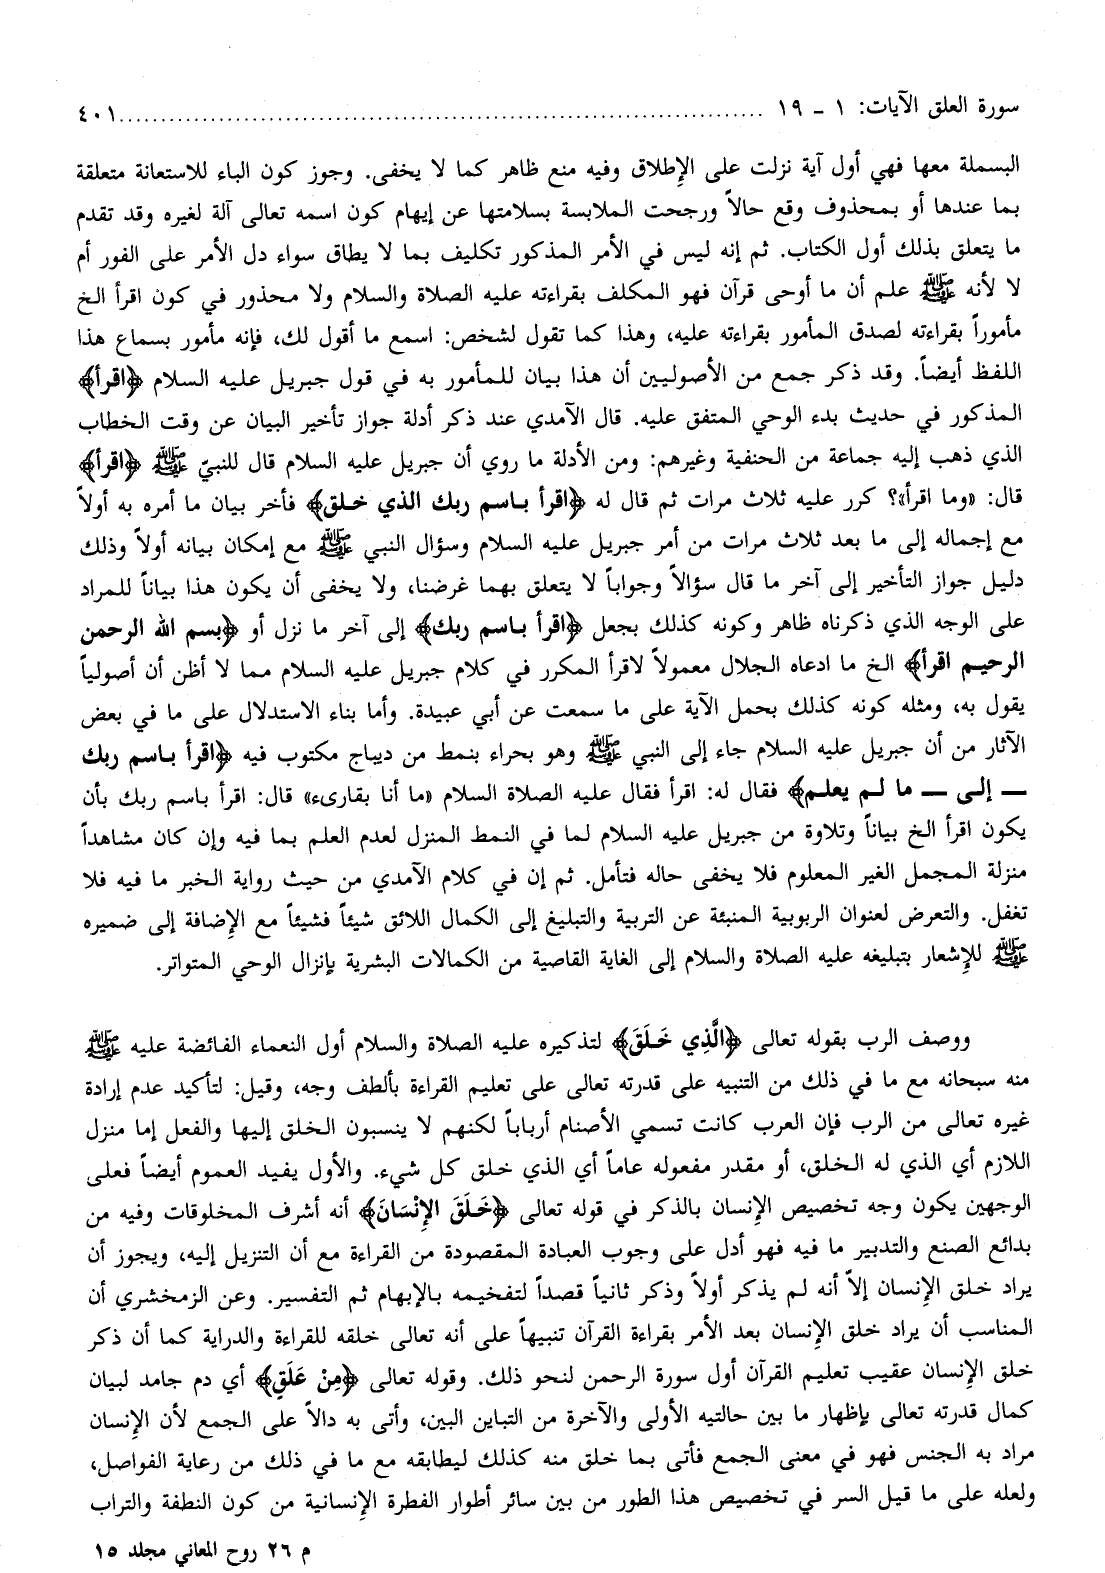 سورة العلق الآيات: ١ ـ ١٩ ........................................................................ ٤٠١
البسملة معها فهي أول آية نزلت على الإِطلاق وفيه منع ظاهر كما لا يخفى. وجوز كون الباء للاستعانة متعلقة
بما عندها أو بمحذوف وقع حالاً ورجحت الملابسة بسلامتها عن إيهام كون اسمه تعالى آلة لغيره وقد تقدم
ما يتعلق بذلك أول الكتاب. ثم إنه ليس في الأمر المذكور تكليف بما لا يطاق سواء دل الأمر على الفور أم
لا لأنه ﷺ علم أن ما أوحى قرآن فهو المكلف بقراءته عليه الصلاة والسلام ولا محذور في كون اقرأ الخ
مأموراً بقراءته لصدق المأمور بقراءته عليه، وهذا كما تقول لشخص: اسمع ما أقول لك، فإنه مأمور بسماع هذا
اللفظ أيضاً. وقد ذكر جمع من الأصوليين أن هذا بيان للمأمور به في قول جبريل عليه السلام ﴿اقرأ﴾
المذكور في حديث بدء الوحي المتفق عليه. قال الآمدي عند ذكر أدلة جواز تأخير البيان عن وقت الخطاب
الذي ذهب إليه جماعة من الحنفية وغيرهم: ومن الأدلة ما روي أن جبريل عليه السلام قال للنبيّ ﷺ ﴿اقرأ﴾
قال: «وما اقرأ»؟ كرر عليه ثلاث مرات ثم قال له ﴿اقرأ باسم ربك الذي خلق﴾ فأخر بيان ما أمره به أولاً
مع إجماله إلى ما بعد ثلاث مرات من أمر جبريل عليه السلام وسؤال النبي ﷺ مع إمكان بيانه أولاً وذلك
دليل جواز التأخير إلى آخر ما قال سؤالاً وجواباً لا يتعلق بهما غرضنا، ولا يخفى أن يكون هذا بياناً للمراد
على الوجه الذي ذكرناه ظاهر وكونه كذلك بجعل ﴿اقرأ باسم ربك﴾ إلى آخر ما نزل أو ﴿بسم الله الرحمن
الرحيم اقرأ﴾ الخ ما ادعاه الجلال معمولاً لاقرأ المكرر في كلام جبريل عليه السلام مما لا أظن أن أصولياً
يقول به، ومثله كونه كذلك بحمل الآية على ما سمعت عن أبي عبيدة. وأما بناء الاستدلال على ما في بعض
الآثار من أن جبريل عليه السلام جاء إلى النبي ﷺ وهو بحراء بنمط من ديباج مكتوب فيه ﴿اقرأ باسم ربك
ـ إلى ـ ما لم يعلم﴾ فقال له: اقرأ فقال عليه الصلاة السلام «ما أنا بقارىء» قال: اقرأ باسم ربك بأن
يكون اقرأ الخ بياناً وتلاوة من جبريل عليه السلام لما في النمط المنزل لعدم العلم بما فيه وإن كان مشاهداً
منزلة المجمل الغير المعلوم فلا يخفى حاله فتأمل. ثم إن في كلام الآمدي من حيث رواية الخبر ما فيه فلا
تغفل. والتعرض لعنوان الربوبية المنبئة عن التربية والتبليغ إلى الكمال اللائق شيئاً فشيئاً مع الإِضافة إلى ضميره
ﷺ للإِشعار بتبليغه عليه الصلاة والسلام إلى الغاية القاصية من الكمالات البشرية بإنزال الوحي المتواتر.
ووصف الرب بقوله تعالى ﴿الَّذِي خَلَقَ﴾ لتذكيره عليه الصلاة والسلام أول النعماء الفائضة عليه ﷺ
منه سبحانه مع ما في ذلك من التنبيه على قدرته تعالى على تعليم القراءة بألطف وجه، وقيل: لتأكيد عدم إرادة
غيره تعالى من الرب فإن العرب كانت تسمي الأصنام أرباباً لكنهم لا ينسبون الخلق إليها والفعل إما منزل
اللازم أي الذي له الخلق، أو مقدر مفعوله عاماً أي الذي خلق كل شيء. والأول يفيد العموم أيضاً فعلى
الوجهين يكون وجه تخصيص الإِنسان بالذكر في قوله تعالى ﴿خَلَقَ الإِنْسَانَ﴾ أنه أشرف المخلوقات وفيه من
بدائع الصنع والتدبير ما فيه فهو أدل على وجوب العبادة المقصودة من القراءة مع أن التنزيل إليه، ويجوز أن
يراد خلق الإِنسان إلاّ أنه لم يذكر أولاً وذكر ثانياً قصداً لتفخيمه بالإِبهام ثم التفسير. وعن الزمخشري أن
المناسب أن يراد خلق الإِنسان بعد الأمر بقراءة القرآن تنبيهاً على أنه تعالى خلقه للقراءة والدراية كما أن ذكر
خلق الإِنسان عقيب تعليم القرآن أول سورة الرحمن لنحو ذلك. وقوله تعالى ﴿مِنْ عَلَقٍ﴾ أي دم جامد لبيان
كمال قدرته تعالى بإظهار ما بين حالتيه الأولى والآخرة من التباين البين، وأتى به دالاً على الجمع لأن الإِنسان
مراد به الجنس فهو في معنى الجمع فأتى بما خلق منه كذلك ليطابقه مع ما في ذلك من رعاية الفواصل،
ولعله على ما قيل السر في تخصيص هذا الطور من بين سائر أطوار الفطرة الإِنسانية من كون النطفة والتراب
م ٢٦ روح المعاني مجلد ١٥